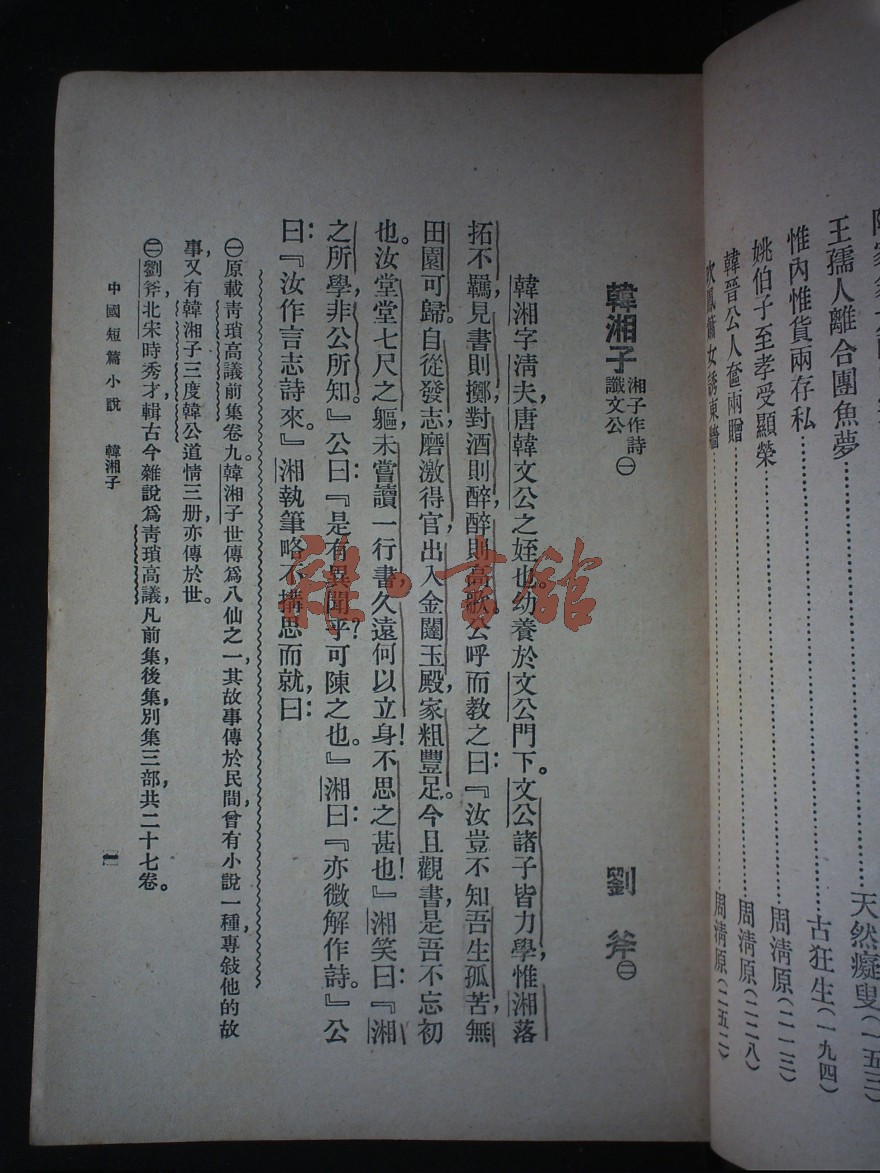 王孺人離合團魚夢……天然癡叟(一五三)
惟內惟貨兩存私……古狂生(一九四)
姚伯子至孝受顯榮……周清原(二一三)
韓晉公人奩兩贈……周清原(二二八)
吹鳳簫女誘東牆……周清原(二五二)
韓湘子 湘子作詩讖文公㊀ 劉斧㊁
韓湘字清夫,唐韓文公之姪也。幼養於文公門下。文公諸子皆力學,惟湘落
拓不羈,見書則擲,對酒則醉,醉則高歌。公呼而教之曰:『汝豈不知吾生孤苦,無
田園可歸。自從發志磨激,得官出入金闥玉殿,家粗豐足。今且觀書,是吾不忘初
也。汝堂堂七尺之軀,未嘗讀一行書,久遠何以立身!不思之甚也!』湘笑曰:『湘
之所學,非公所知。』公曰:『是有異聞乎?可陳之也。』湘曰:『亦微解作詩。』公
曰:『汝作言志詩來。』湘執筆,略不搆思而就,曰:
㊀原載青瑣高議前集卷九。韓湘子世傳爲八仙之一,其故事傳於民間,曾有小說一種,專敍他的故
事,又有韓湘子三度韓公道情三册,亦傳於世。
㊁劉斧,北宋時秀才,輯古今雜說爲青瑣高議,凡前集,後集,別集三部,共二十七卷。
中國短篇小說 韓湘子 一
雜·書館